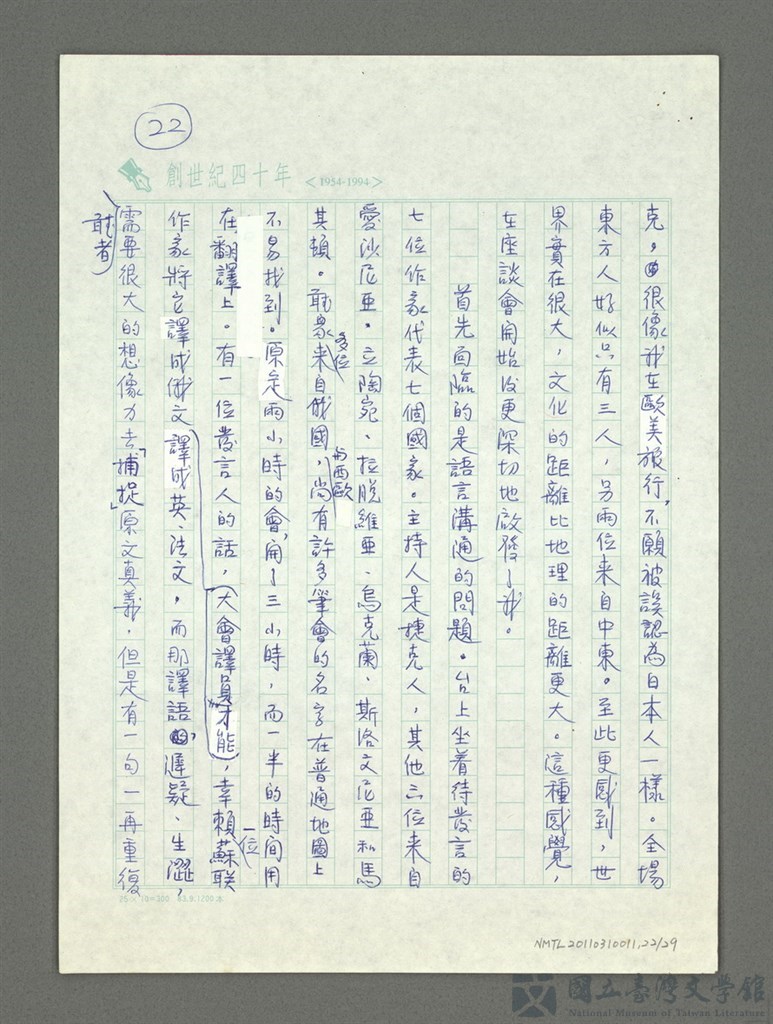 22
創世紀四十年 <1954-1994>
克，很像我在歐美旅行，不願被誤認為日本人一樣。全場
東方人好似只有三人，另兩位來自中東。至此更感到，世
界實在很大，文化的距離比地理的距離更大。這種感覺，
在座談會開始後更深切地啟發了我。
首先面臨的是語言溝通的問題。台上坐着待發言的
七位作家代表七個國家。主持人是捷克人，其他六位來自
愛沙尼亞、立陶宛、拉脫維亞、烏克蘭、斯洛文尼亞和馬
其頓。聽眾多位來自俄國與西歐，尚有許多筆會的名字在普通地圖上
不易找到。原定兩小時的會，開了三小時，而一半的時間用
在翻譯上。有一位發言人的話，幸賴一位蘇聯
作家將它譯成俄文，大會譯員才能譯成英、法文，而那譯語，遲疑、生澀，
聽者需要很大的想像力去「捕捉」原文真義，但是有一句一再重復
25×12=300 83.9.1200本
NMTL20110310011,22/29
國立臺灣文學館
National Museum of Taiwan Literature